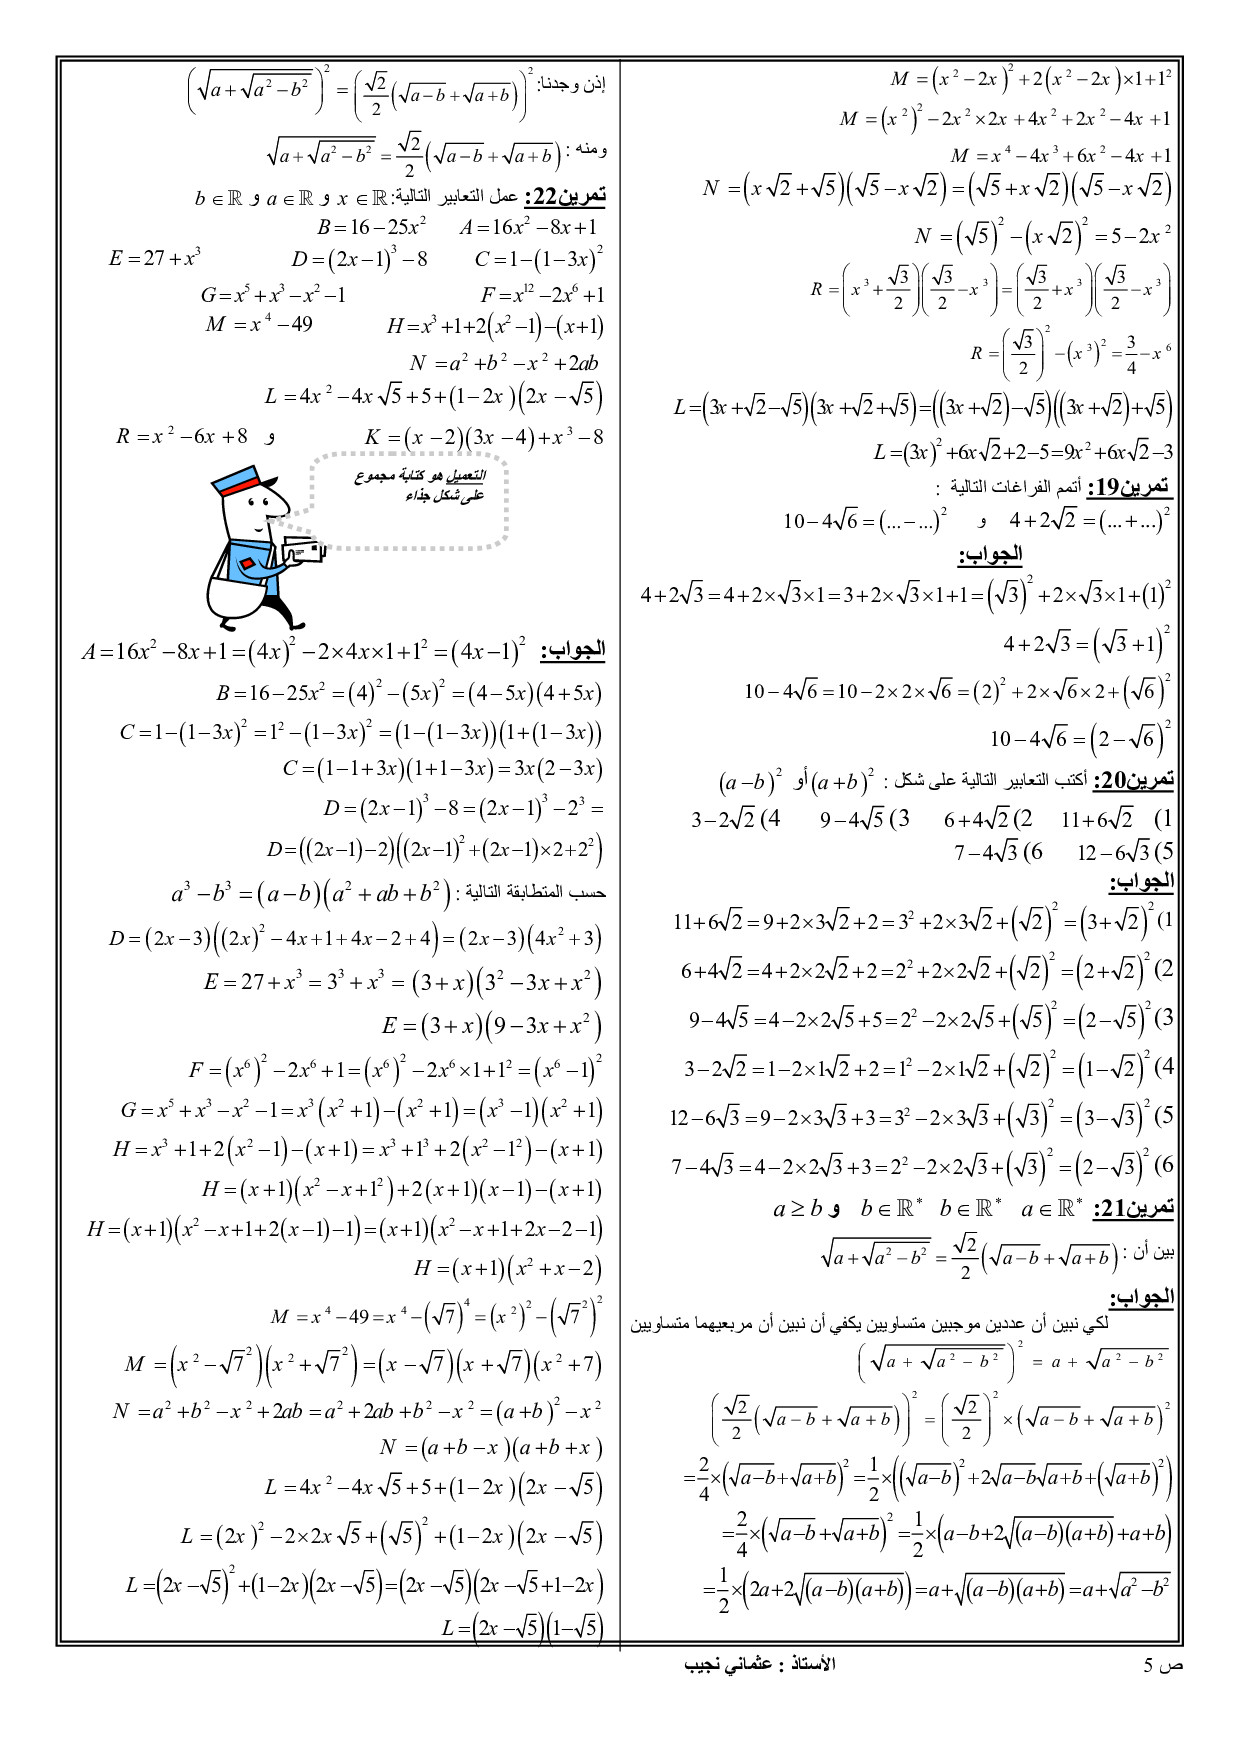 M = (x² − 2x)² + 2(x² − 2x)×1 + 1²
M = (x²)² − 2x² × 2x + 4x² + 2x² − 4x + 1
M = x⁴ − 4x³ + 6x² − 4x + 1
N = (x√2 + √5)(√5 − x√2) = (√5 + x√2)(√5 − x√2)
N = (√5)² − (x√2)² = 5 − 2x²
R = (x³ + √3/2)(√3/2 − x³) = (√3/2 + x³)(√3/2 − x³)
R = (√3/2)² − (x³)² = 3/4 − x⁶
L = (3x + √2 − √5)(3x + √2 + √5) = ((3x + √2) − √5)((3x + √2) + √5)
L = (3x)² + 6x√2 + 2 − 5 = 9x² + 6x√2 − 3
تمرين19: أتمم الفراغات التالية :
4 + 2√2 = (... + ...)² و 10 − 4√6 = (... − ...)²
الجواب:
4 + 2√3 = 4 + 2×√3×1 = 3 + 2×√3×1 + 1 = (√3)² + 2×√3×1 + (1)²
4 + 2√3 = (√3 + 1)²
10 − 4√6 = 10 − 2×2×√6 = (2)² + 2×√6×2 + (√6)²
10 − 4√6 = (2 − √6)²
تمرين20: أكتب التعابير التالية على شكل : (a + b)² أو (a − b)²
1) 11 + 6√2 2) 6 + 4√2 3) 9 − 4√5 4) 3 − 2√2
5) 12 − 6√3 6) 7 − 4√3
الجواب:
1) 11 + 6√2 = 9 + 2×3√2 + 2 = 3² + 2×3√2 + (√2)² = (3 + √2)²
2) 6 + 4√2 = 4 + 2×2√2 + 2 = 2² + 2×2√2 + (√2)² = (2 + √2)²
3) 9 − 4√5 = 4 − 2×2√5 + 5 = 2² − 2×2√5 + (√5)² = (2 − √5)²
4) 3 − 2√2 = 1 − 2×1√2 + 2 = 1² − 2×1√2 + (√2)² = (1 − √2)²
5) 12 − 6√3 = 9 − 2×3√3 + 3 = 3² − 2×3√3 + (√3)² = (3 − √3)²
6) 7 − 4√3 = 4 − 2×2√3 + 3 = 2² − 2×2√3 + (√3)² = (2 − √3)²
تمرين21: a ∈ ℝ* b ∈ ℝ* b ∈ ℝ* و a ≥ b
بين أن : √(a + √(a² − b²)) = √2/2 (√(a − b) + √(a + b))
الجواب:
لكي نبين أن عددين موجبين متساويين يكفي أن نبين أن مربعيهما متساويين
(√(a + √(a² − b²)))² = a + √(a² − b²)
(√2/2 (√(a − b) + √(a + b)))² = (√2/2)² × (√(a − b) + √(a + b))²
= 2/4 × (√(a−b) + √(a+b))² = 1/2 × ((√(a−b))² + 2√(a−b)√(a+b) + (√(a+b))²)
= 2/4 × (√(a−b) + √(a+b))² = 1/2 × (a − b + 2√((a−b)(a+b)) + a + b)
= 1/2 × (2a + 2√((a−b)(a+b))) = a + √((a−b)(a+b)) = a + √(a² − b²)
إذن وجدنا: (√(a + √(a² − b²)))² = (√2/2 (√(a−b) + √(a+b)))²
ومنه : √(a + √(a² − b²)) = √2/2 (√(a − b) + √(a + b))
تمرين22: عمل التعابير التالية: x ∈ ℝ و a ∈ ℝ و b ∈ ℝ
A = 16x² − 8x + 1 B = 16 − 25x²
C = 1 − (1 − 3x)² D = (2x − 1)³ − 8 E = 27 + x³
F = x¹² − 2x⁶ + 1 G = x⁵ + x³ − x² − 1
H = x³ + 1 + 2(x² − 1) − (x + 1) M = x⁴ − 49
N = a² + b² − x² + 2ab
L = 4x² − 4x√5 + 5 + (1 − 2x)(2x − √5)
K = (x − 2)(3x − 4) + x³ − 8 و R = x² − 6x + 8
التعميل هو كتابة مجموع
على شكل جذاء
الجواب: A = 16x² − 8x + 1 = (4x)² − 2×4x×1 + 1² = (4x − 1)²
B = 16 − 25x² = (4)² − (5x)² = (4 − 5x)(4 + 5x)
C = 1 − (1 − 3x)² = 1² − (1 − 3x)² = (1 − (1 − 3x))(1 + (1 − 3x))
C = (1 − 1 + 3x)(1 + 1 − 3x) = 3x(2 − 3x)
D = (2x − 1)³ − 8 = (2x − 1)³ − 2³ =
D = ((2x − 1) − 2)((2x − 1)² + (2x − 1)×2 + 2²)
حسب المتطابقة التالية : a³ − b³ = (a − b)(a² + ab + b²)
D = (2x − 3)((2x)² − 4x + 1 + 4x − 2 + 4) = (2x − 3)(4x² + 3)
E = 27 + x³ = 3³ + x³ = (3 + x)(3² − 3x + x²)
E = (3 + x)(9 − 3x + x²)
F = (x⁶)² − 2x⁶ + 1 = (x⁶)² − 2x⁶×1 + 1² = (x⁶ − 1)²
G = x⁵ + x³ − x² − 1 = x³(x² + 1) − (x² + 1) = (x³ − 1)(x² + 1)
H = x³ + 1 + 2(x² − 1) − (x + 1) = x³ + 1³ + 2(x² − 1²) − (x + 1)
H = (x + 1)(x² − x + 1²) + 2(x + 1)(x − 1) − (x + 1)
H = (x + 1)(x² − x + 1 + 2(x − 1) − 1) = (x + 1)(x² − x + 1 + 2x − 2 − 1)
H = (x + 1)(x² + x − 2)
M = x⁴ − 49 = x⁴ − (√7)⁴ = (x²)² − (√7²)²
M = (x² − √7²)(x² + √7²) = (x − √7)(x + √7)(x² + 7)
N = a² + b² − x² + 2ab = a² + 2ab + b² − x² = (a + b)² − x²
N = (a + b − x)(a + b + x)
L = 4x² − 4x√5 + 5 + (1 − 2x)(2x − √5)
L = (2x)² − 2×2x√5 + (√5)² + (1 − 2x)(2x − √5)
L = (2x − √5)² + (1 − 2x)(2x − √5) = (2x − √5)(2x − √5 + 1 − 2x)
L = (2x − √5)(1 − √5)
ص 5 الأستاذ : عثماني نجيب